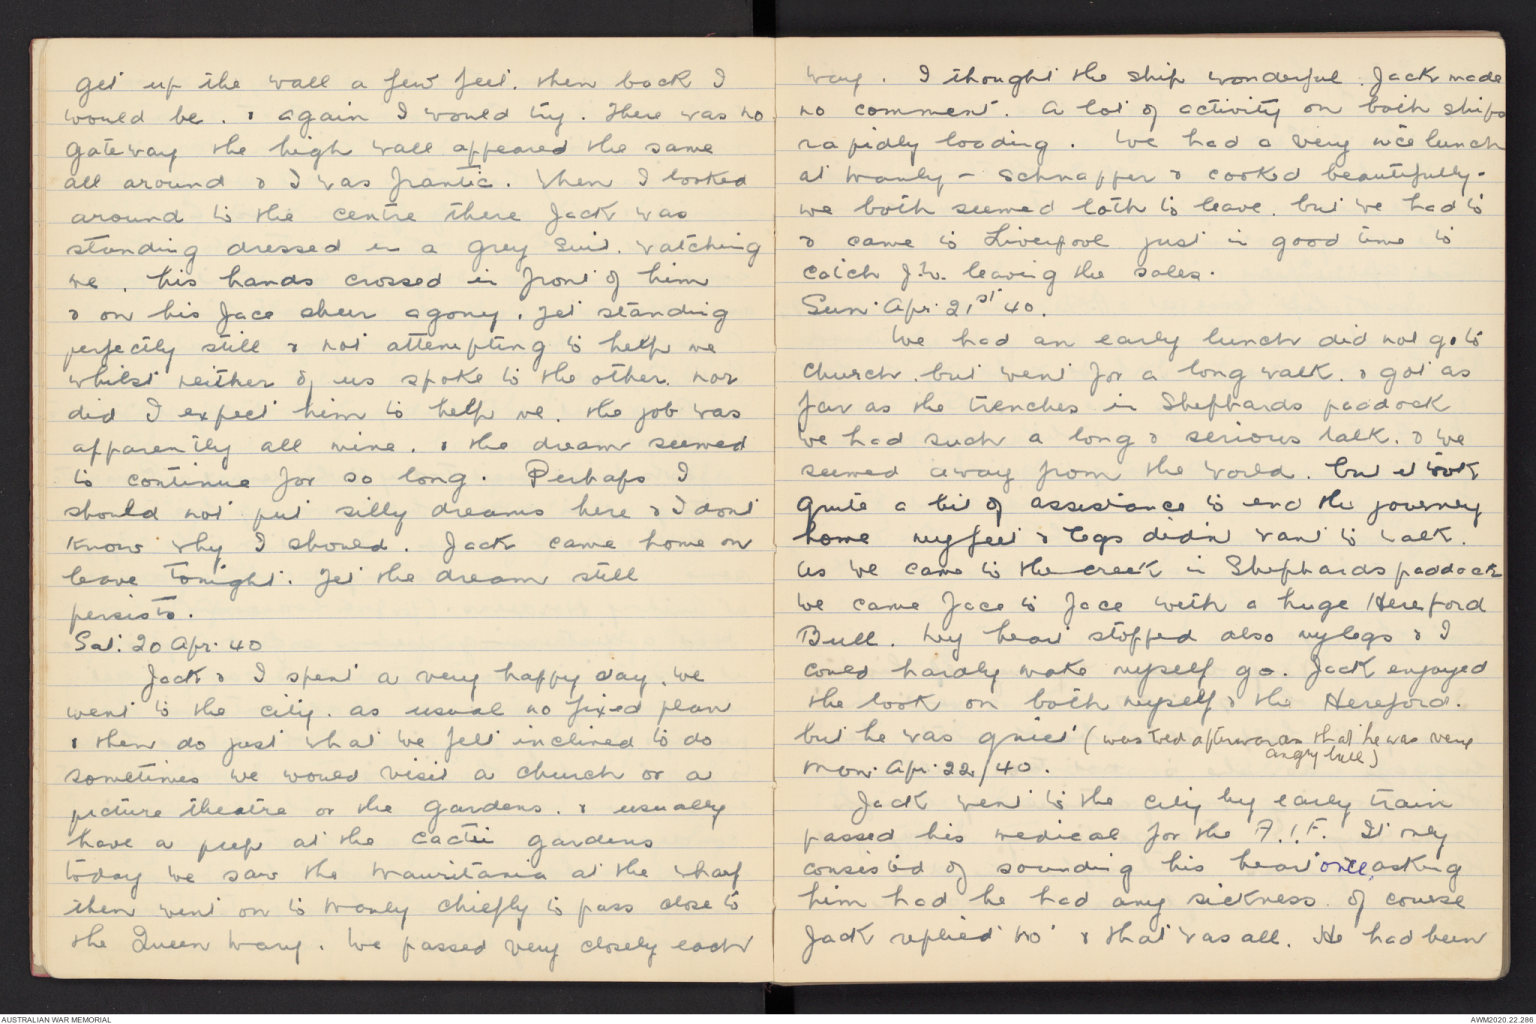 get up the wall a few feet. then back I
would be. & again I would try. There was no
gateway the high wall appeared the same
all around & I was frantic. When I looked
around to the centre there Jack was
standing dressed in a grey suit. watching
me. his hands crossed in front of him
& on his face sheer agony. yet standing
perfectly still & not attempting to help me
whilst neither of us spoke to the other. nor
did I expect him to help me. the job was
apparently all mine. & the dream seemed
to continue for so long. Perhaps I
should not put silly dreams here & I dont
know why I should. Jack came home on
leave tonight. Yet the dream still
persists.
Sat. 20 Apr. 40
Jack & I spent a very happy day. we
went to the city. as usual no fixed plan
& then do just what we felt inclined to do
sometimes we would visit a church or a
picture theatre or the gardens. & usually
have a peep at the cactii gardens
today we saw the Mauritania at the wharf
then went on to Manly chiefly to pass close to
the Queen Mary. We passed very closely each
way. I thought the ship wonderful. Jack made
no comment. A lot of activity on both ships
rapidly loading. We had a very nice lunch
at Manly - Schnapper & cooked beautifully.
we both seemed loth to leave. but we had to
& came to Liverpool just in good time to
catch J.W. leaving the sales.
Sun. Apr. 21st 40.
We had an early lunch did not go to
Church. but went for a long walk. & got as
far as the trenches in Shephards paddock
we had such a long & serious talk. & we
seemed away from the world. but it took
quite a bit of assistance to end the journey
home my feet & legs didn't want to walk.
As we came to the creek in Shephards paddock
we came face to face with a huge Hereford
Bull. My heart stopped also my legs & I
could hardly make myself go. Jack enjoyed
the look on both myself & the Hereford.
but he was quiet (was told afterwards that he was very
angry bull)
Mon. Apr. 22/40.
Jack went to the city by early train
passed his medical for the A.I.F. It only
consisted of sounding his heart once, asking
him had he had any sickness. of course
Jack replied 'no' & that was all. He had been
AUSTRALIAN WAR MEMORIAL
AWM2020.22.286